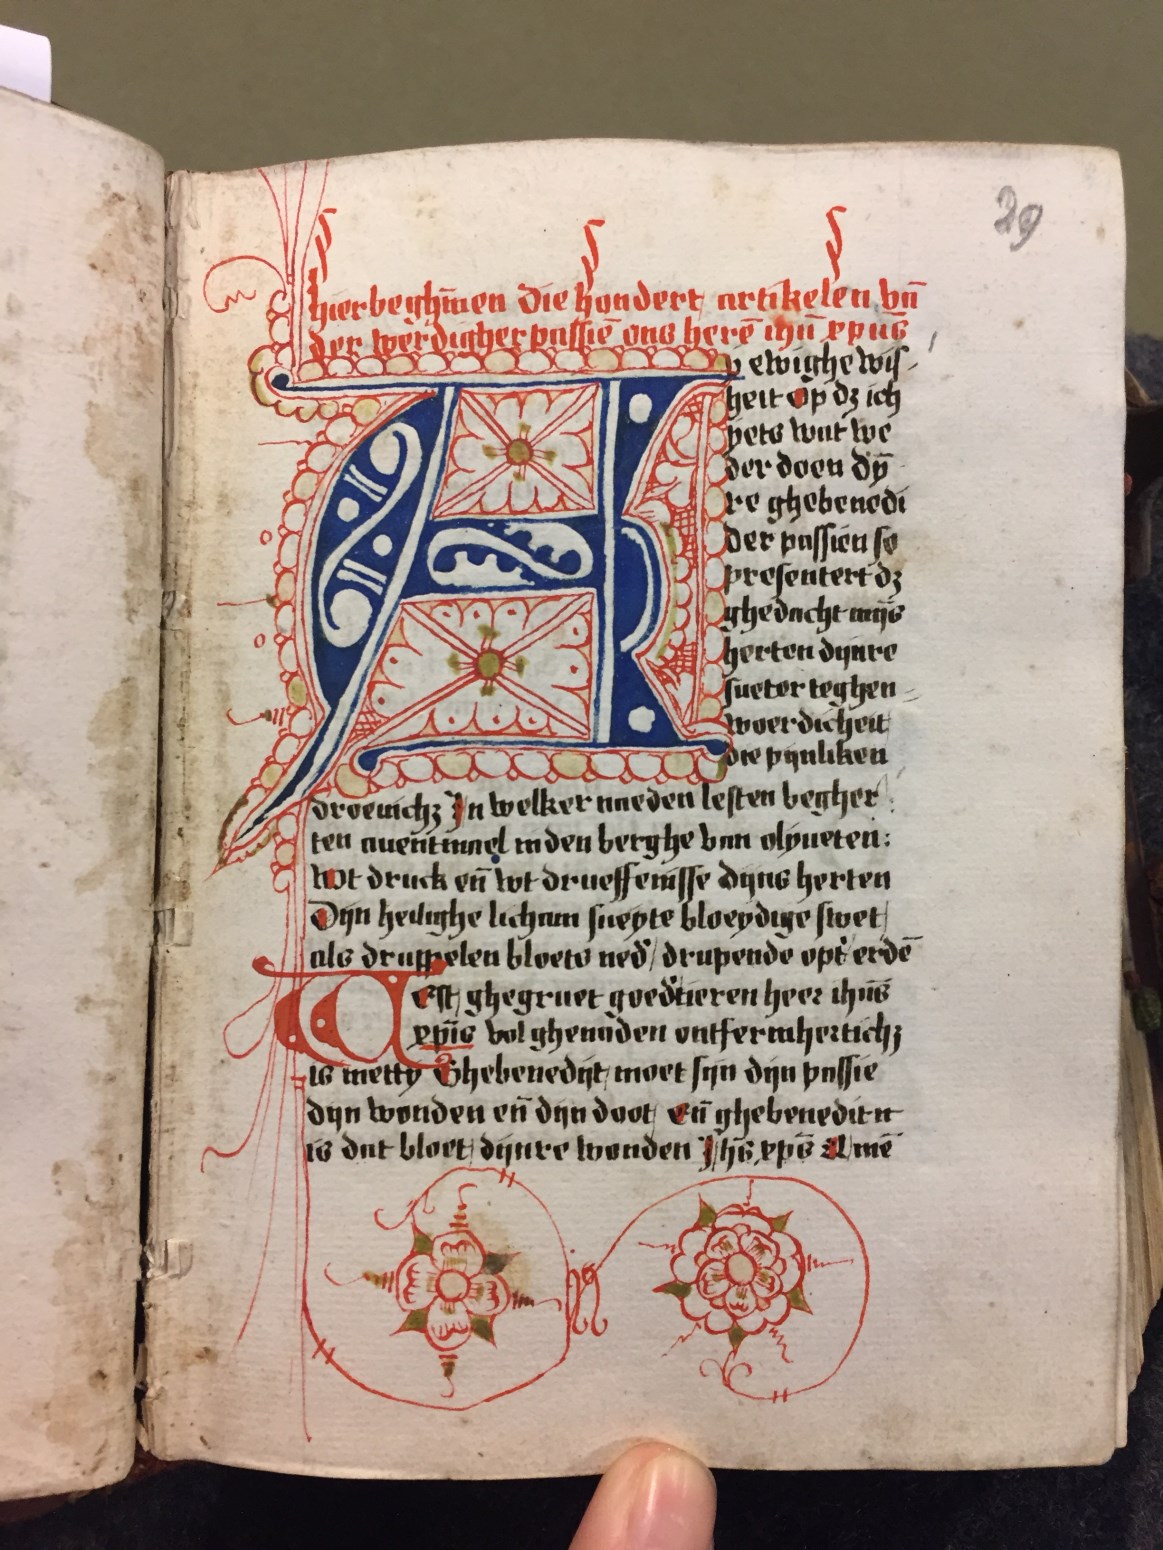 29
hierbeghīnen die hondert artikelen vā
der werdigher passiē ons herē ihū xpūs
Av ewighe wijs
heit op dz ich
yets wat we
der doen dȳ
re ghebenedi
der passien so
presentert dz
ghedacht mijs
herten dijnre
sueter teghen
woerdicheit
die pijnliken
droeuichz In welker naeden lesten begher
ten auentmael in den berghe van olyueten:
wt druck eñ wt drueffenisse dijns herten
Dijn heilighe licham sueyte bloeydige swet
als druppelen bloets ned' drupende opt erdē
West ghegruet goed'tieren heer ihūs
xpūs vol ghenaden ontfermhertichz
is metty Ghebenedijt moet sijn dijn passie
dijn wonden eñ dijn doot eñ ghebenedit
is dat bloet dijnre wonden Jhs xpūs Amē